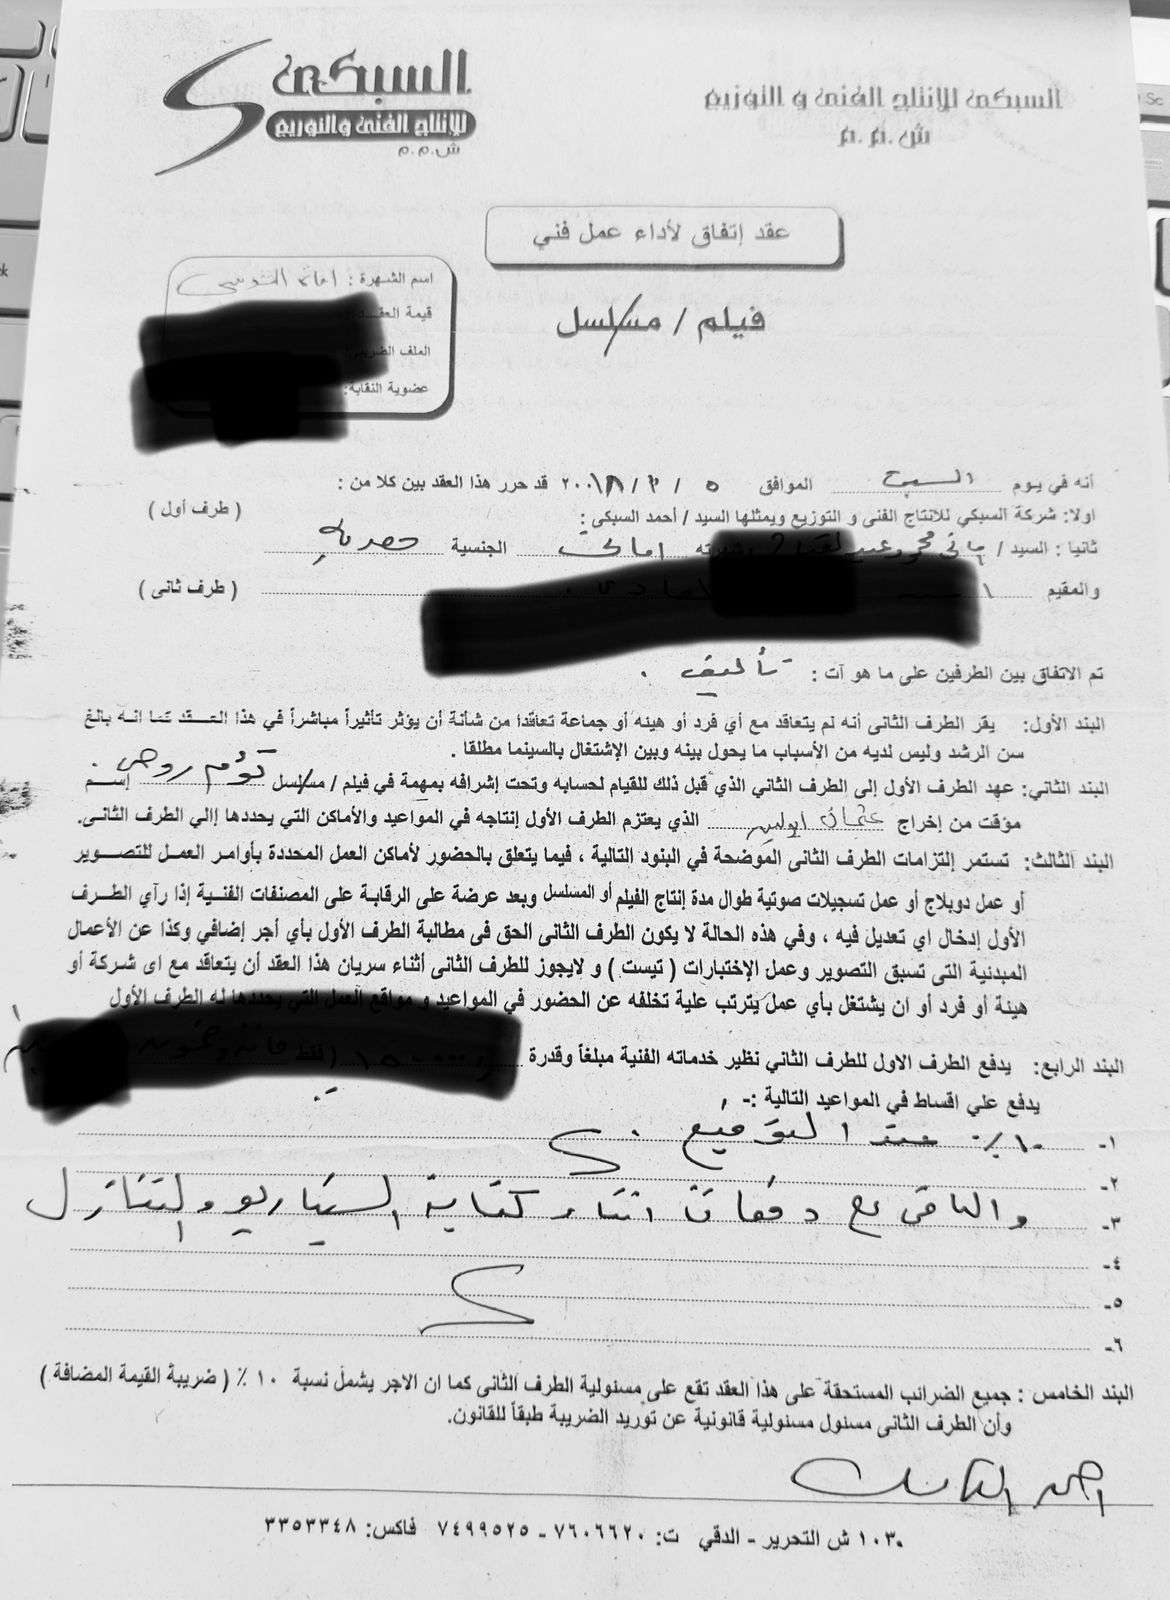 السبكى
للإنتاج الفنى والتوزيع
ش.م.م
السبكى للإنتاج الفنى و التوزيع
ش.م.م
عقد إتفاق لأداء عمل فني
اسم الشهرة : امانى التونسى
قيمة العقد
الملف الضريبي
عضوية النقابة:
فيلم / مسلسل
أنه في يوم السبت الموافق ٥ / ٣ / ٢٠٠١٨ قد حرر هذا العقد بين كلا من :
اولا: شركة السبكي للانتاج الفنى و التوزيع ويمثلها السيد / أحمد السبكى : ( طرف أول )
ثانيا : السيد / امانى محمود عبد امانى الجنسية مصرية
والمقيم ( طرف ثانى )
تم الاتفاق بين الطرفين على ما هو آت : تأليف .
البند الأول: يقر الطرف الثانى أنه لم يتعاقد مع أي فرد أو هيئه أو جماعة تعاقدا من شأنة أن يؤثر تأثيراً مباشراً في هذا العقد كما انه بالغ
سن الرشد وليس لديه من الأسباب ما يحول بينه وبين الإشتغال بالسينما مطلقا .
البند الثاني: عهد الطرف الأول إلى الطرف الثاني الذي قبل ذلك للقيام لحسابه وتحت إشرافه بمهمة في فيلم / مسلسل توأم روحى إسم
مؤقت من إخراج عثمان ابولبن الذي يعتزم الطرف الأول إنتاجه في المواعيد والأماكن التي يحددها إالي الطرف الثانى.
البند الثالث: تستمر إلتزامات الطرف الثانى الموضحة في البنود التالية ، فيما يتعلق بالحضور لأماكن العمل المحددة بأوامر العمل للتصوير
أو عمل دوبلاج أو عمل تسجيلات صوتية طوال مدة إنتاج الفيلم أو المسلسل وبعد عرضة على الرقابة على المصنفات الفنية إذا رآي الطرف
الأول إدخال اي تعديل فيه ، وفي هذه الحالة لا يكون الطرف الثانى الحق فى مطالبة الطرف الأول بأي أجر إضافي وكذا عن الأعمال
المبدئية التى تسبق التصوير وعمل الإختبارات ( تيست ) و لايجوز للطرف الثانى أثناء سريان هذا العقد أن يتعاقد مع اى شركة أو
هيئة أو فرد أو ان يشتغل بأي عمل يترتب علية تخلفه عن الحضور في المواعيد و مواقع العمل التي يحددها له الطرف الأول
البند الرابع: يدفع الطرف الاول للطرف الثاني نظير خدماته الفنية مبلغاً وقدرة
يدفع علي اقساط في المواعيد التالية :-
١- ١٠٪ عند التوقيع .
٢-
٣- والباقى دفعات اثناء كتابة السيناريو والتنازل
٤-
٥-
٦-
البند الخامس : جميع الضرائب المستحقة على هذا العقد تقع على مسئولية الطرف الثانى كما ان الاجر يشمل نسبة ١٠ ٪ ( ضريبة القيمة المضافة )
وأن الطرف الثانى مسئول مسئولية قانونية عن توريد الضريبة طبقاً للقانون.
١٠٣ ش التحرير - الدقي ت: ٧٦٠٦٦٢٠ - ٧٤٩٩٥٢٥ فاكس: ٣٣٥٣٣٤٨